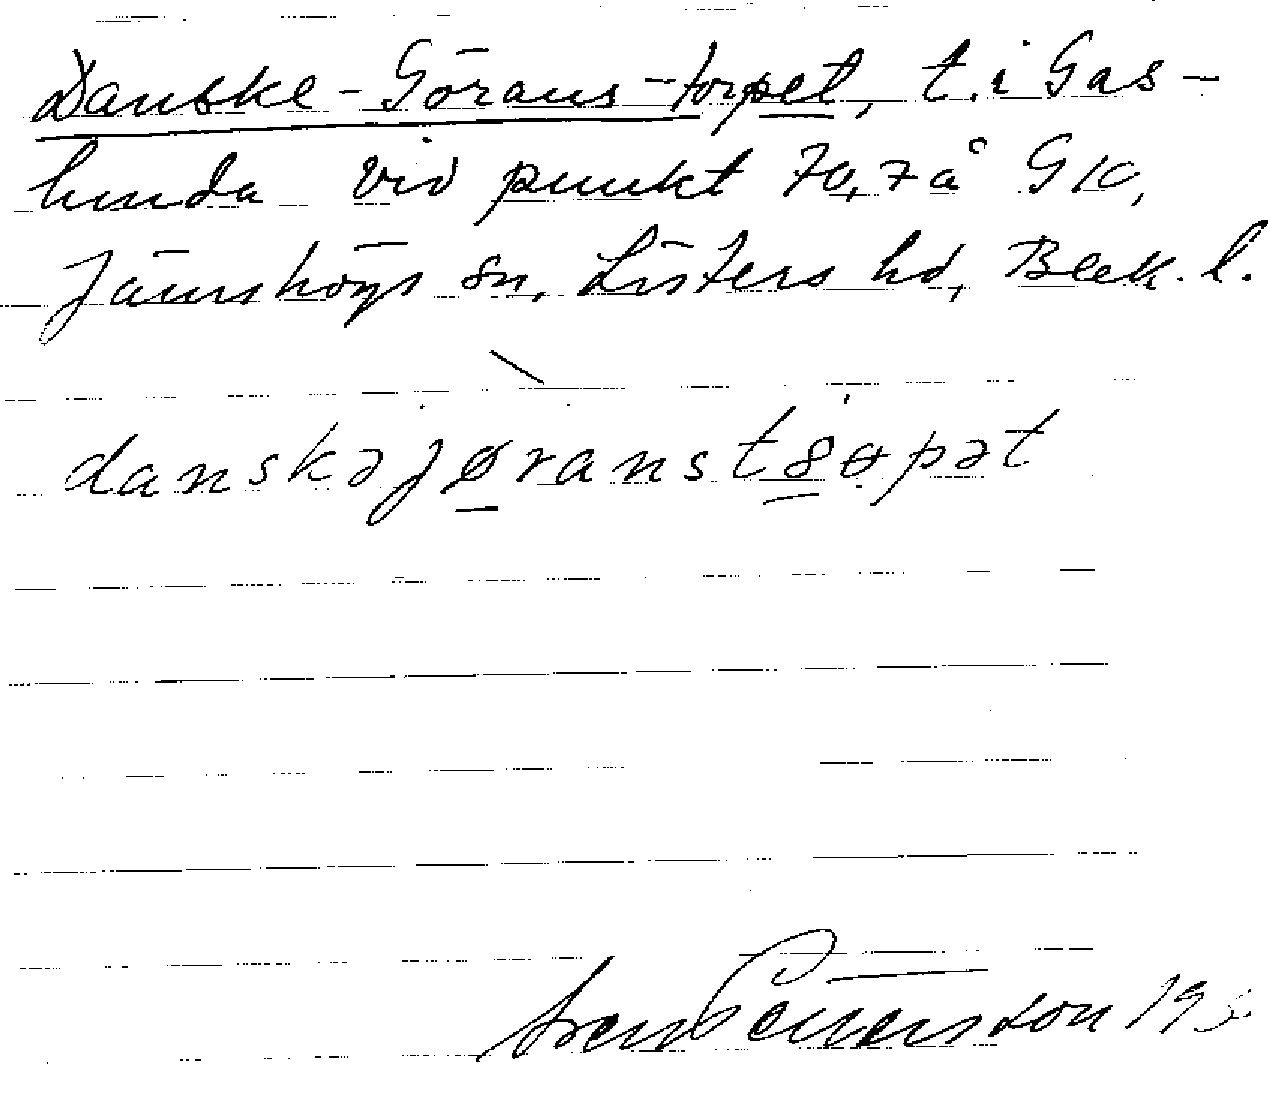 Danske-Görans-torpet, t. i Gas-
lunda vid punkt 70,7 å GK,
Jämshögs sn, Listers hd, Blek. l.
danskəjøranst8ɵpət
19